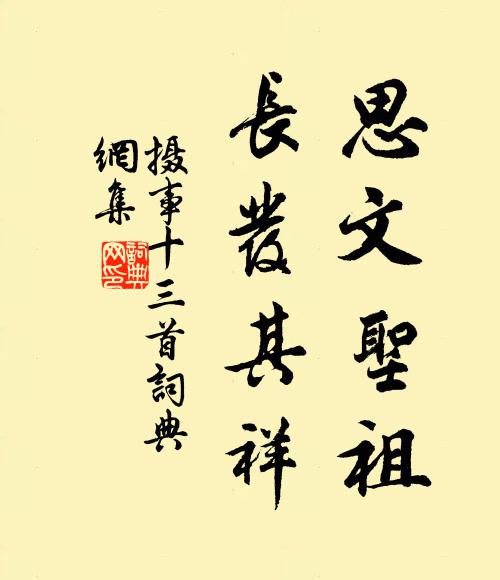 思文聖祖
長發其祥
摄事十三首詞典
網集
詞典網印